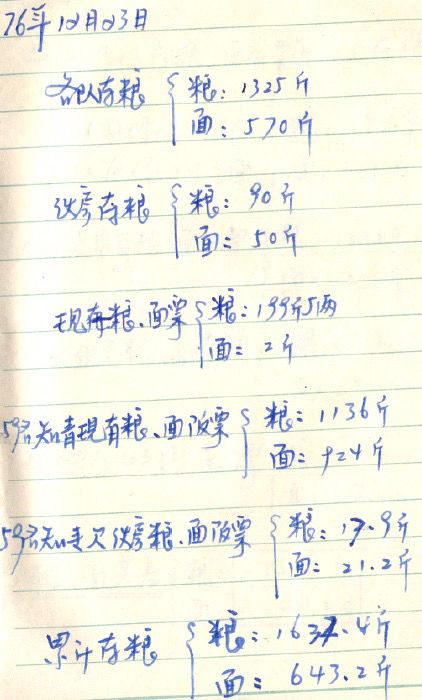 76年12月23日
各队存粮 { 粮：1325斤
面：570斤
伙房存粮 { 粮：90斤
面：50斤
现存粮、面票 { 粮：199斤5两
面：2斤
59名知青现有粮、面饭票 { 粮：1136斤
面：斤
59名知青欠伙房粮、面饭票 { 粮：17.9斤
面：21.2斤
累计存粮 { 粮：1632.4斤
面：643.2斤